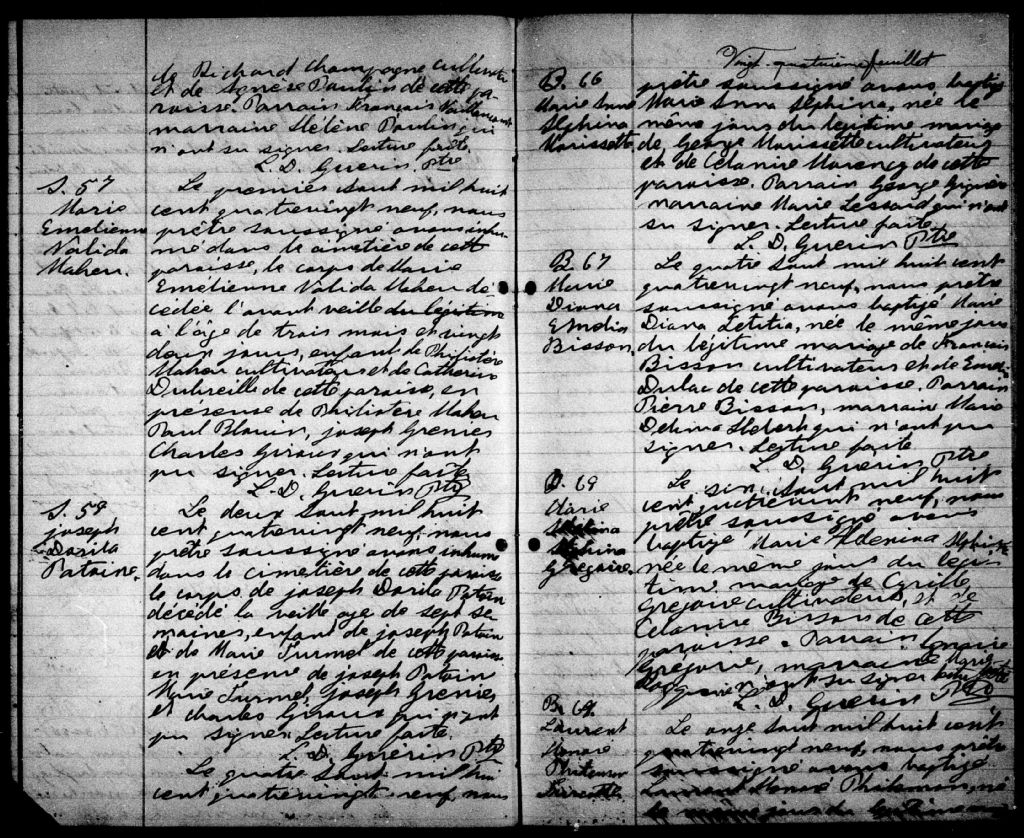 de Richard Champagne cultivateur
et de Agnèse Paulin de cette pa-
roisse. Parrain François Vaillancourt
marraine Hélène Paulin qui
n'ont su signer. Lecture faite.
L. D. Guerin Ptre
S. 57
Marie
Emelienne
Valida
Maheu.
Le premier aout mil huit
cent quatrevingt neuf, nous
prêtre soussigné avons inhu-
mé dans le cimetière de cette
paroisse, le corps de Marie
Emélienne Valida Maheu dé-
cédée l'avant veille du légitime
à l'âge de trois mois et vingt
deux jours, enfant de Philistère
Maheu cultivateur et de Catherine
Dubreille de cette paroisse, en
présense de Philistère Maheu
Paul Blouin, joseph Grenier
Charles Giroux qui n'ont
pu signer. Lecture faite
L. D. Guerin Ptre
S. 58
joseph
Dorila
Patoine.
Le deux aout mil huit
cent quatrevingt neuf, nous
prêtre soussigné avons inhumé
dans le cimetière de cette paroisse
le corps de joseph Dorila Patoin
décédé la veille age de sept se-
maines, enfant de joseph Patoin
et de Marie Turmel de cette paroisse
en présence de joseph Patoin
Marie Turmel, Joseph Grenier
et Charles Giroux qui n'ont
pu signer. Lecture faite.
L. D. Guerin Ptre
Le quatre aout mil huit
cent quatrevingt neuf, nous
Vingt-quatrième feuillet
B. 66
Marie Anna
Alphina
Morissette
prêtre soussigné avons baptisé
Marie Anna Alphina, née le
même jour du légitime mariage
de George Morissette cultivateur
et de Célanire Marency de cette
paroisse. Parrain George Giguère
marraine Marie Lessard qui n'ont
su signer. Lecture faite
L. D. Guerin Ptre
B. 67
Marie
Diana
Bisson.
Le quatre aout mil huit cent
quatrevingt neuf, nous prêtre
soussigné avons baptisé Marie
Diana Letitia, née le même jour
du légitime mariage de François
Bisson cultivateur et de
Dulac de cette paroisse. Parrain
Pierre Bisson, marrain Marie
qui n'ont pu
signer. Lecture faite
L. D. Guerin Ptre
Marie
Alphina
Grégoire.
Le six aout mil huit
cent quatrevint neuf, nous
prêtre, soussigné avons
baptizé Marie
née le même jour du légi-
time mariage de Cyrille
Grégoire cultivateur, et de
Célanire Bisson de cette
paroisse. Parrain
Grégoire, marraine
n'ont su signer
L. D. Guerin Ptre
Laurent
Honoré
Le onze aout mil huit cent
quatrevingt neuf, nous prêtre
soussigné avons baptizé
Laurent Honoré Philemon, né
le même jour du